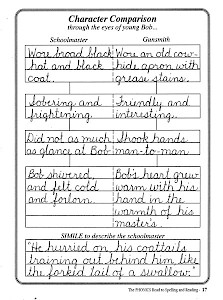 Character Comparison
through the eyes of young Bob...
Schoolmaster Gunsmith
Wore broad black Wore an old cow-
hat and black hide apron with
coat. grease stains.
Sobering and Friendly and
frightening. interesting.
Did not as much Shook hands
as glance at Bob man-to-man
Bob shivered Bob's heart grew
and felt cold warm with his
and forlorn. hand in the
warmth of his
master's.
SIMILE to describe the schoolmaster
"He hurried on, his coattails
training out behind him like
the forked tail of a swallow."
The PHONICS Road to Spelling and Reading - 17